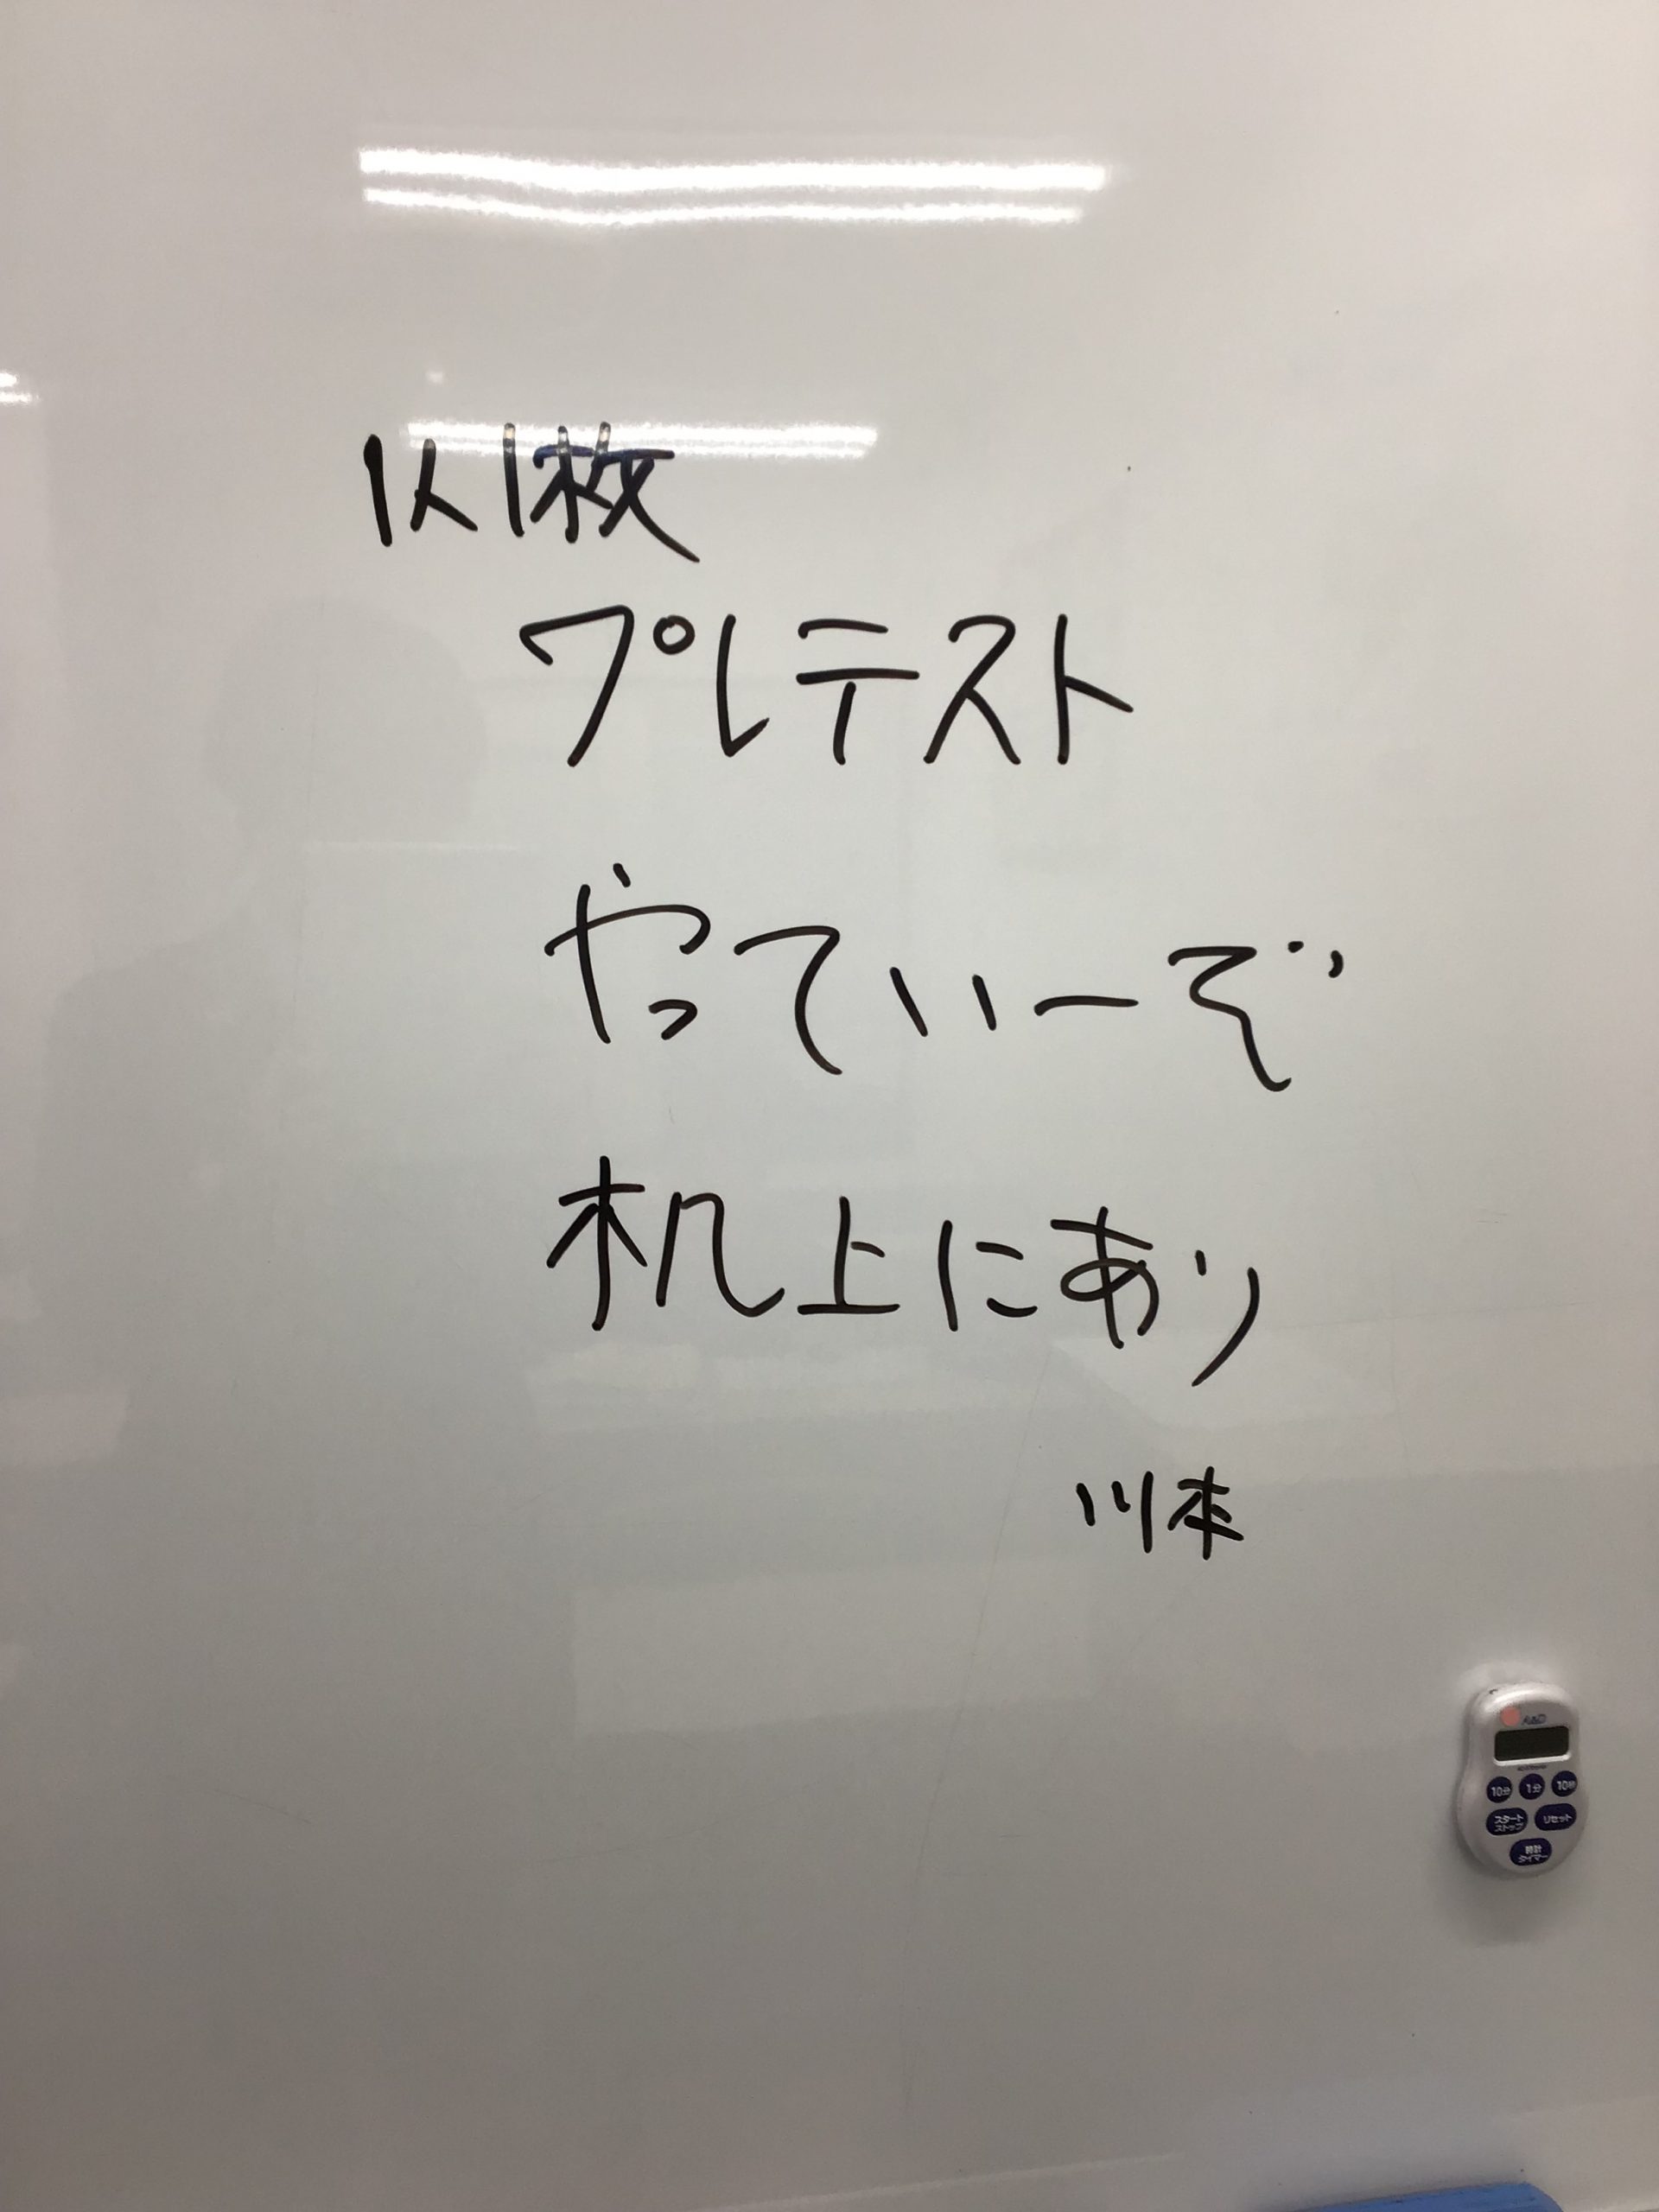 1人1枚
プレテスト
やっていーぞ
机上にあり
川本
A&D
10分 1分 10秒
スタート リセット
ストップ
時計
タイマー